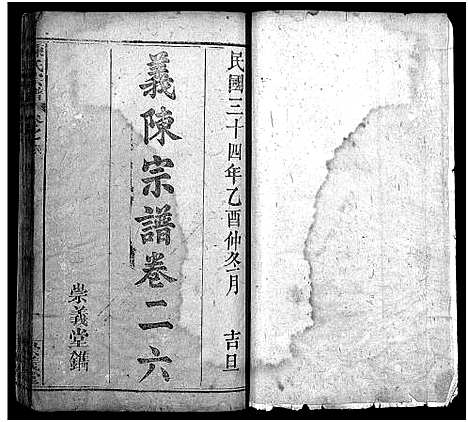 民國三十四年乙酉仲冬月 吉旦
義陳宗譜卷二六
崇義堂鐫